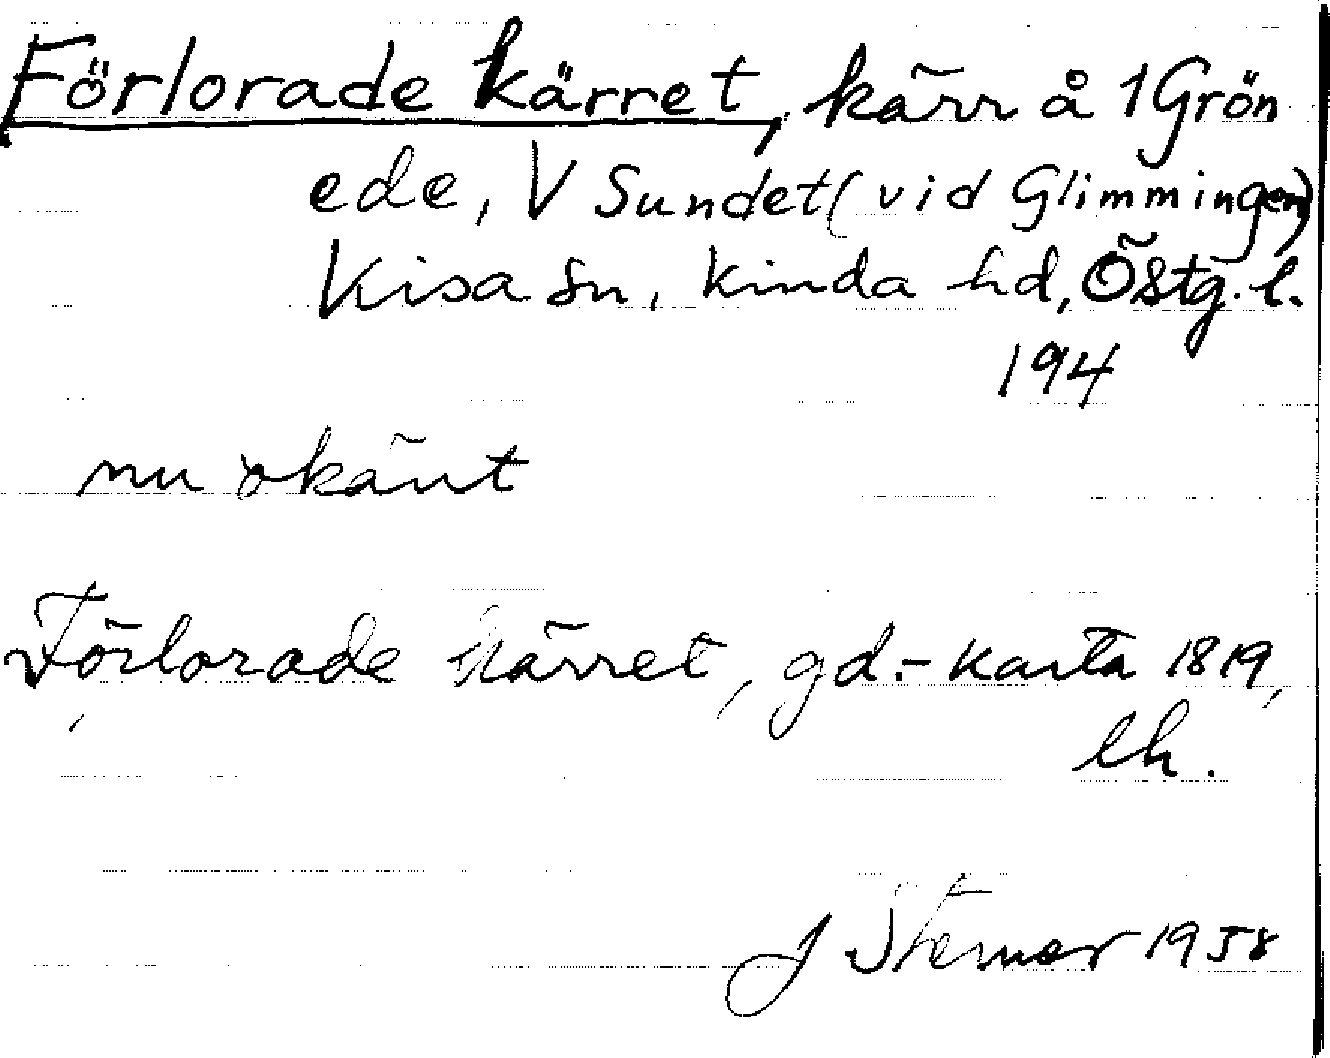 Förlorade kärret, kärr å 1 Grön
ede, V Sundet (vid Glimmingen)
Kisa sn, Kinda hd, Östg. l.
194
nu okänt
Förlorade kärret, gd.-karta 1819,
lh.
J Sterner 1958